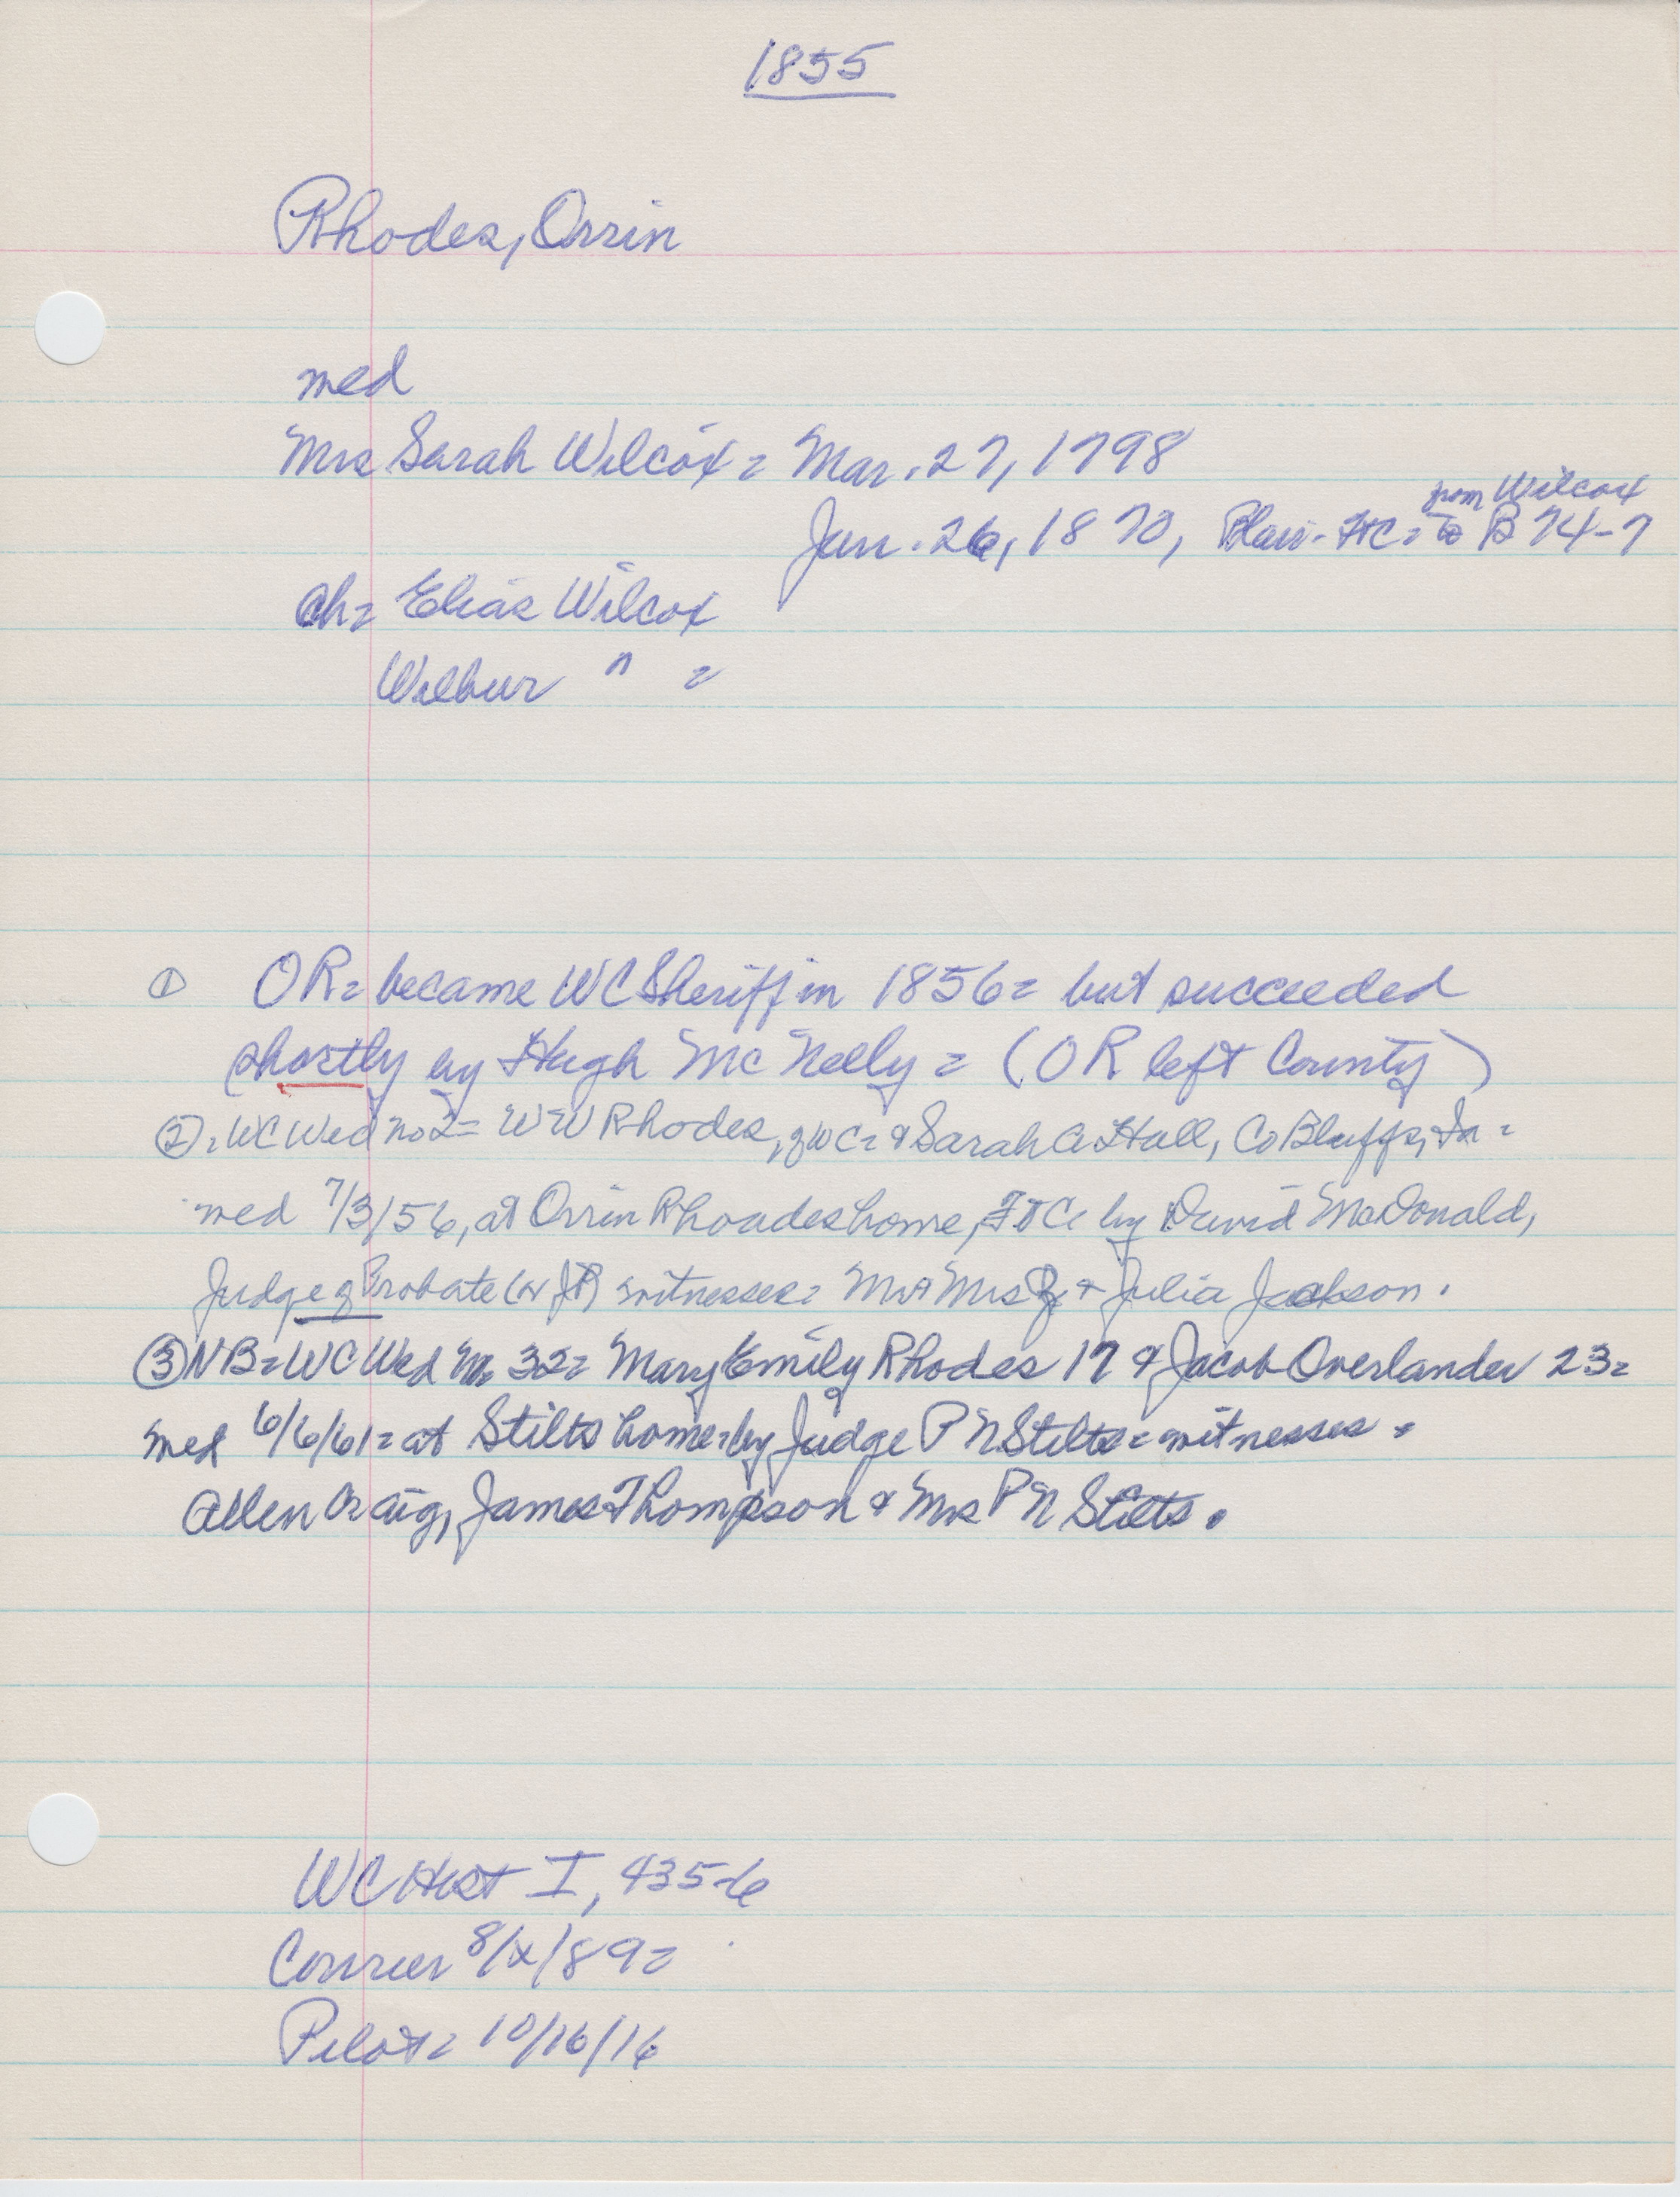 1855
Rhodes, Orrin
med
Mrs Sarah Wilcox = Mar. 27, 1798
from Wilcox
Jan. 26, 1870, Blair - HC = to B 74-7
ch = Elias Wilcox
Wilbur " =
① OR = became WC Sheriff in 1856 = but succeeded
shortly by Hugh McNeely = (OR left County)
② = WC Wed no 2 = WW Rhodes, of WC = & Sarah A Hall, Co Bluffs, Ia =
med 7/3/56, at Orrin Rhoades home, Ft C by David McDonald,
Judge of Probate (or JP) witnesses = Mr & Mrs & Julia Jackson.
③ NB = WC Wed no 32 = Mary Emily Rhodes 17 & Jacob Overlander 23 =
med 6/6/61 = at Stilts home = by Judge P N Stilts = witnesses =
Allen Craig, James Thompson & Mrs P N Stilts.
WC Hist I, 435-6
Courier 8/x/89 =
Pilot = 10/16/16